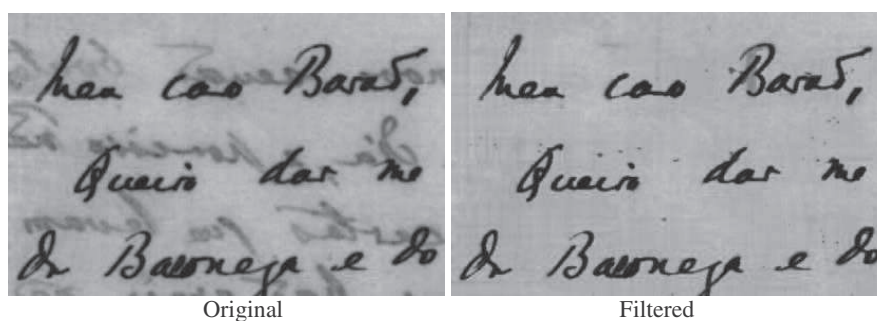 Meu caro Barão,
Queira dar me
da Baroneza e do
Original
Meu caro Barão,
Queira dar me
da Baroneza e do
Filtered